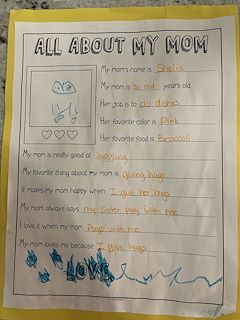 ALL ABOUT MY MOM
My mom's name is Shelia
My mom is so old years old.
Her job is to do dishes
Her favorite color is Pink
Her favorite food is Broccoli
My mom is really good at Snuggling
My favorite thing about my mom is giving hugs
It makes my mom happy when I give her hugs
My mom always says my sister play with me
I love it when my mom Plays with me
My mom loves me because I give hugs
LOVE